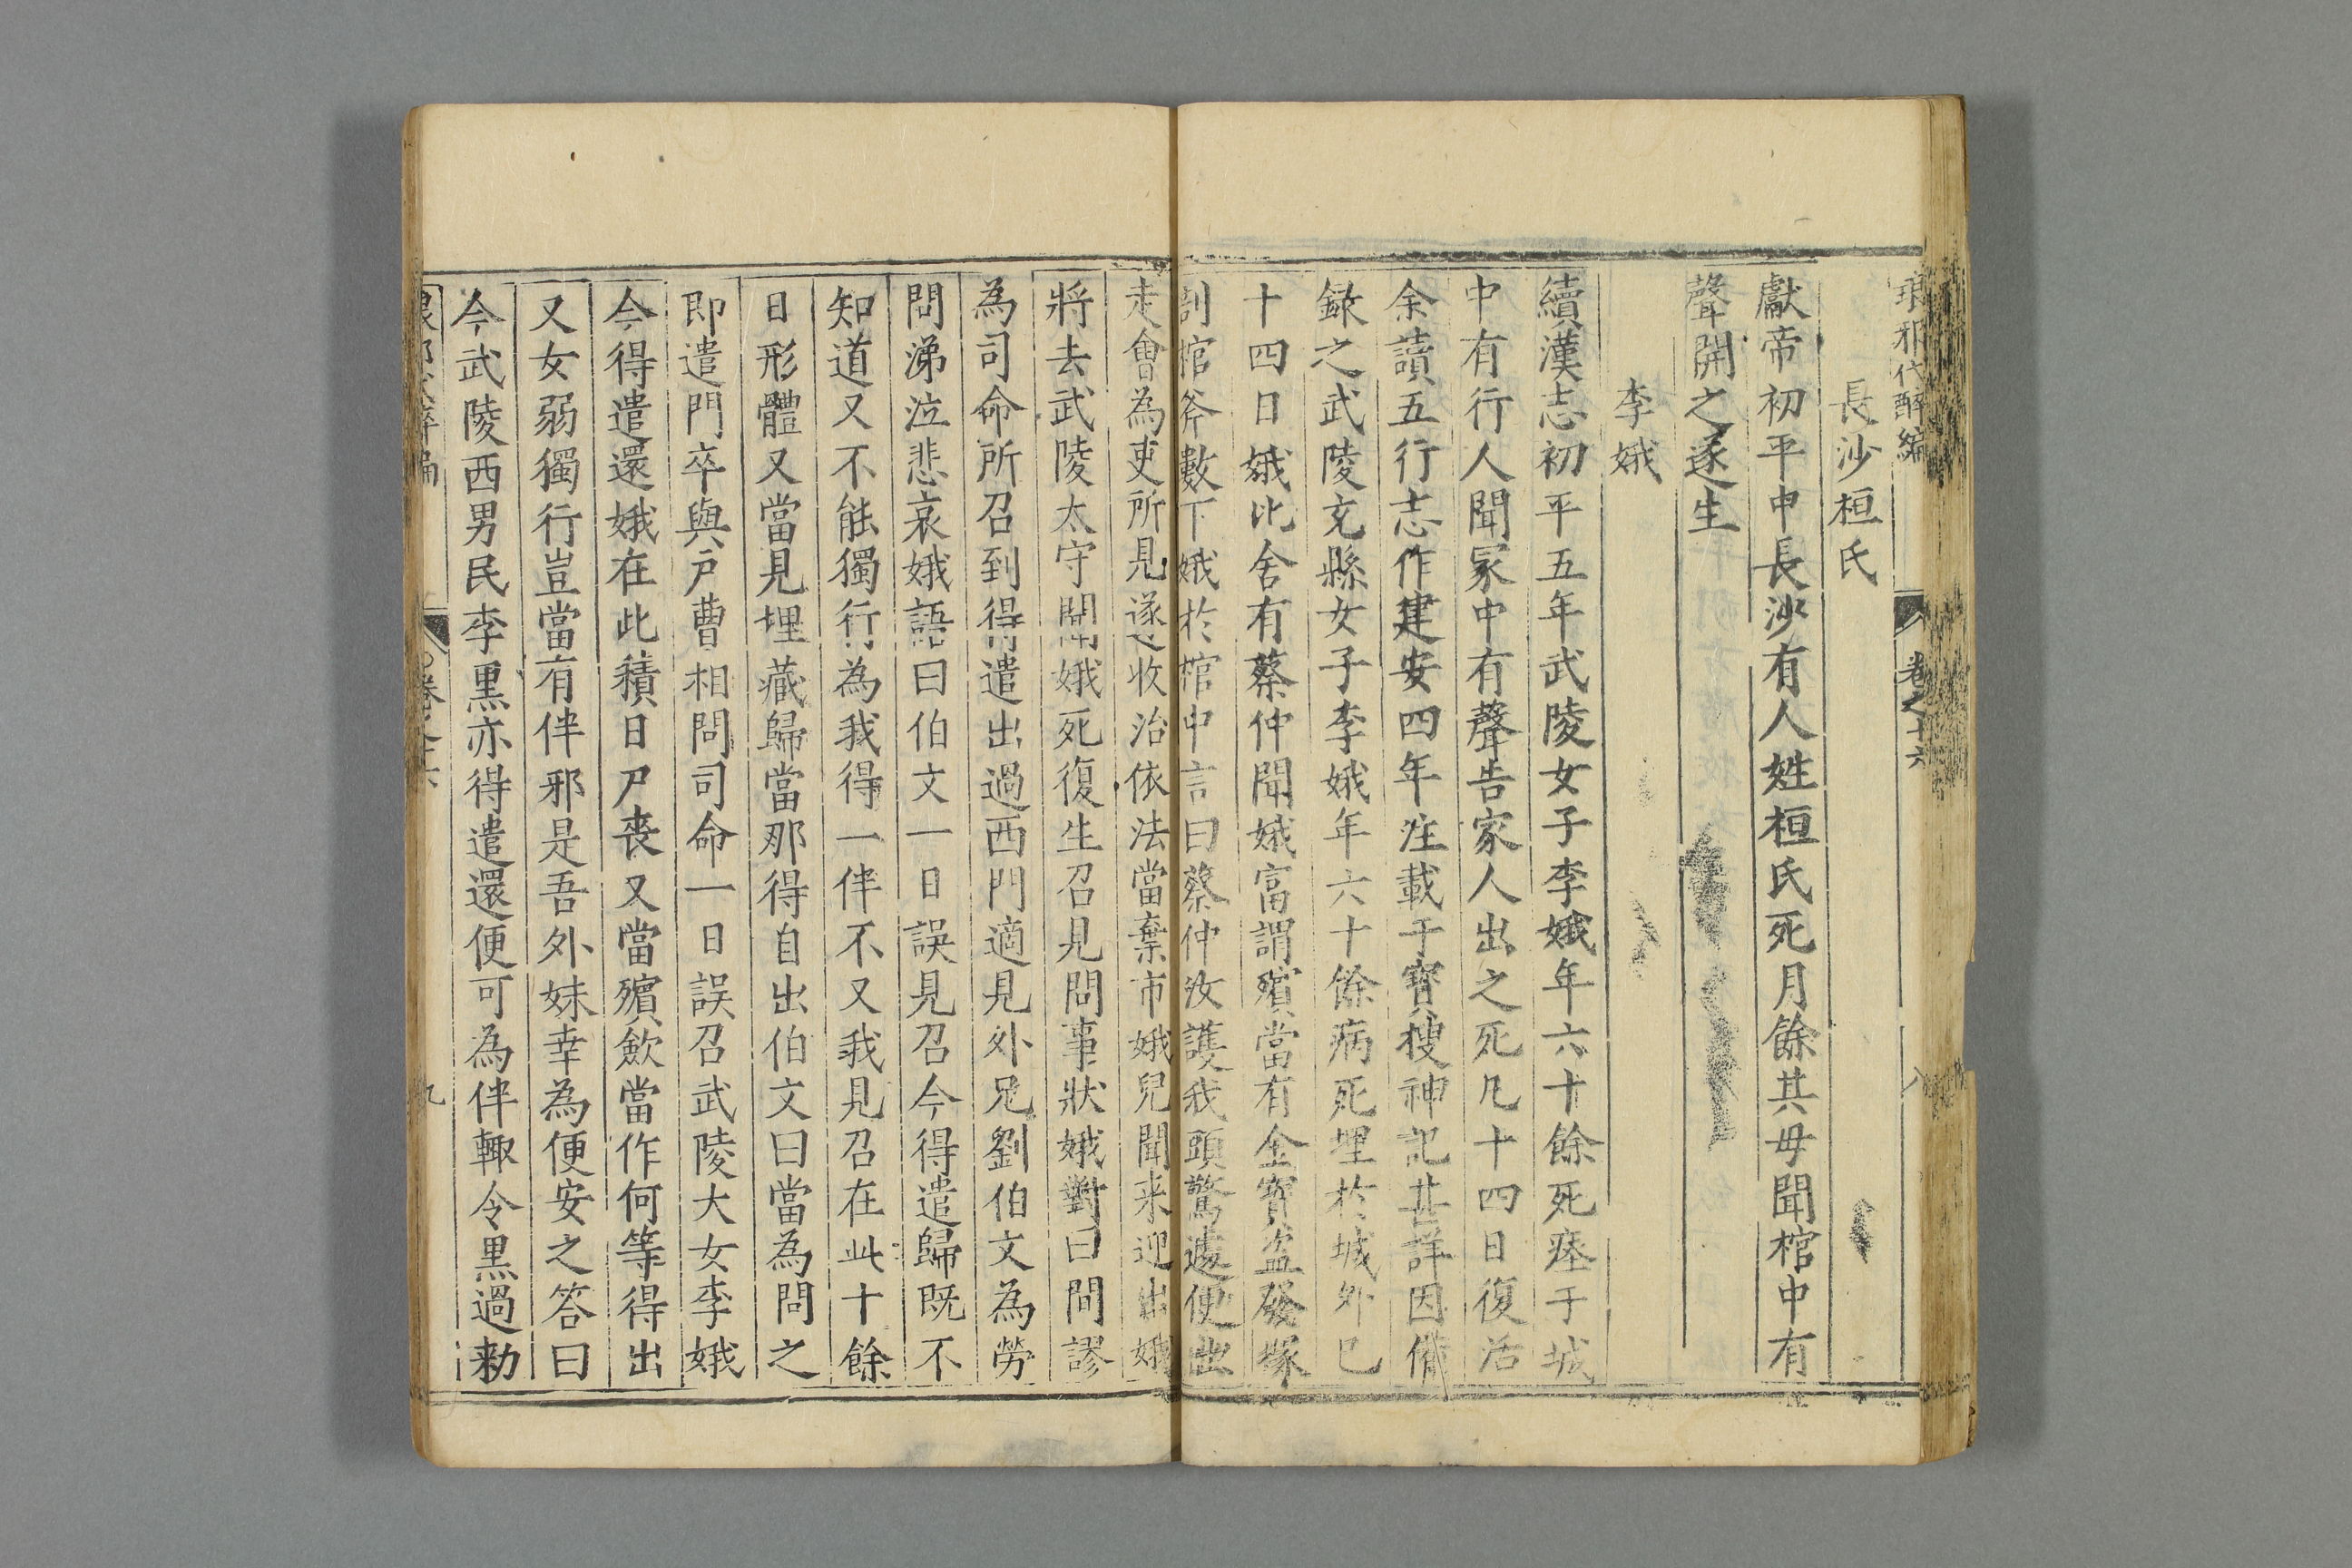 琅邪代醉編 卷之十六 八
長沙桓氏
獻帝初平中長沙有人姓桓氏死月餘其母聞棺中有
聲開之遂生
李娥
續漢志初平五年武陵女子李娥年六十餘死瘞于城
中有行人聞冢中有聲告家人出之死凡十四日復活
余讀五行志作建安四年注載于寶搜神記甚詳因備
錄之武陵充縣女子李娥年六十餘病死埋於城外已
十四日娥比舍有蔡仲聞娥富謂殯當有金寶盜發塚
剖棺斧數下娥於棺中言曰蔡仲汝護我頭驚遽便出
走會為吏所見遂收治依法當棄市娥兒聞來迎出娥
將去武陵太守聞娥死復生召見問事狀娥對曰聞謬
為司命所召到得遣出過西門適見外兄劉伯文為勞
問涕泣悲哀娥語曰伯文一日誤見召今得遣歸既不
知道又不能獨行為我得一伴不又我見召在此十餘
日形體又當見埋藏歸當那得自出伯文曰當為問之
即遣門卒與戶曹相問司命一日誤召武陵大女李娥
今得遣還娥在此積日尸喪又當殯歛當作何等得出
又女弱獨行豈當有伴邪是吾外妹幸為便安之答曰
今武陵西男民李黑亦得遣還便可為伴輒令黑過勑
卷之十六 九